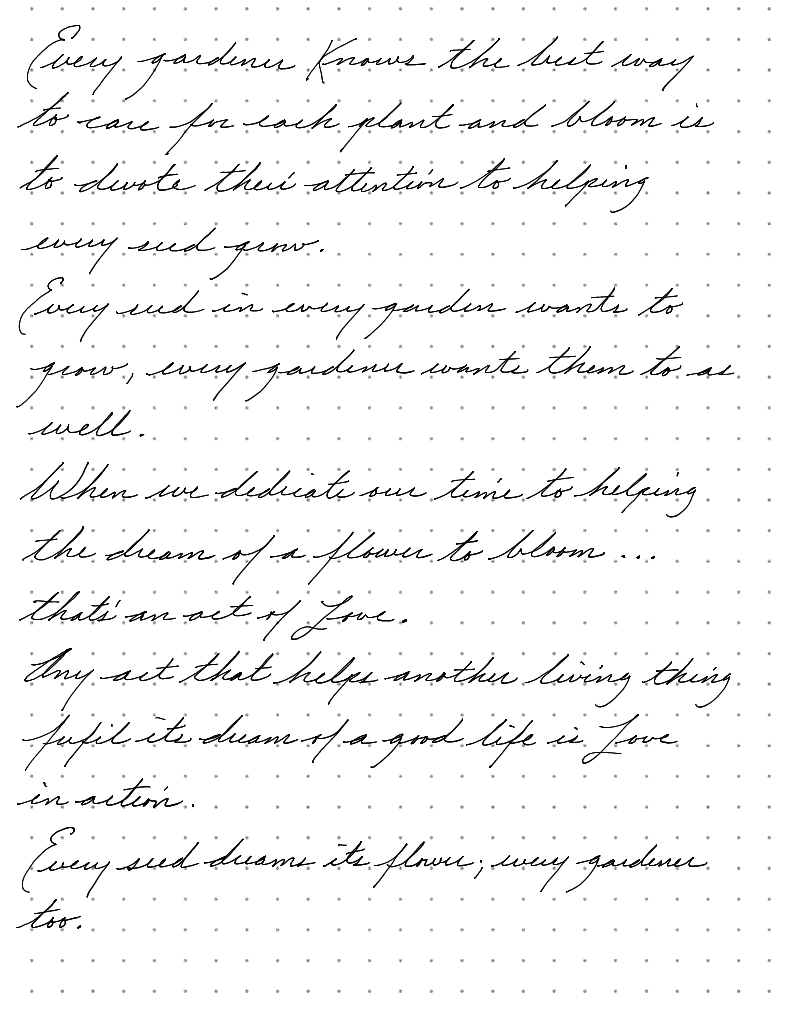 Every gardener Knows the best way
to care for each plant and bloom is
to devote their attention to helping
every seed grow.
Every seed in every garden wants to
grow, every gardener wants them to as
well.
When we dedicate our time to helping
the dream of a flower to bloom ...
that's an act of Love.
Any act that helps another living thing
fufil its dream of a good life is Love
in action.
Every seed dreams its flower; every gardener
too.